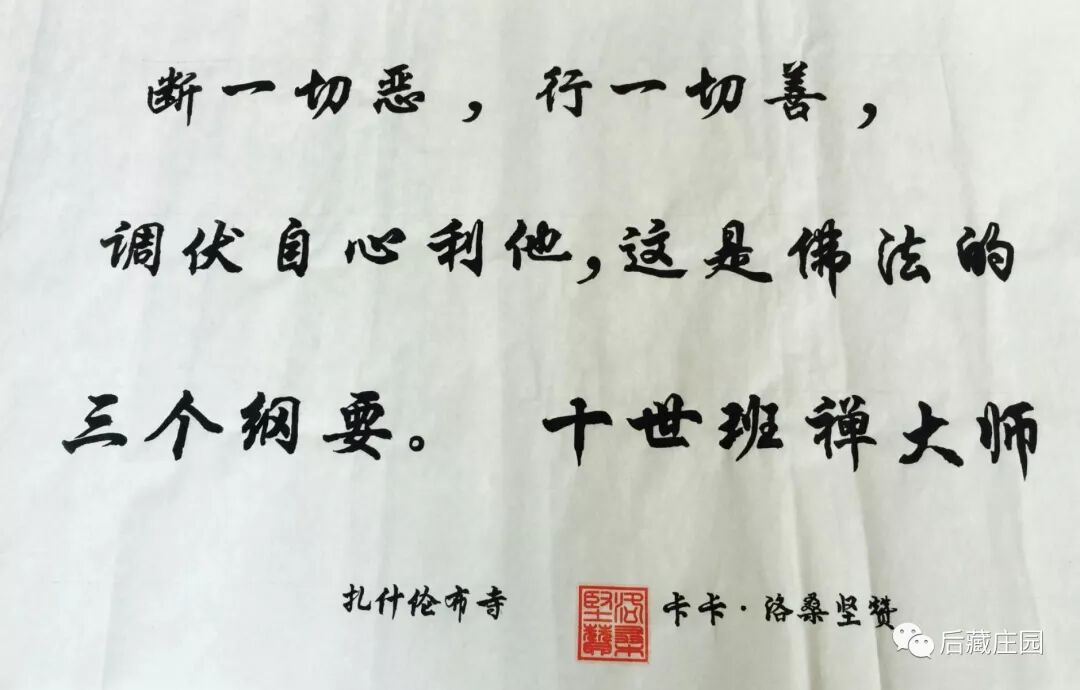 断一切恶，行一切善，
调伏自心利他，这是佛法的
三个纲要。 十世班禅大师
扎什伦布寺 卡卡·洛桑坚赞
洛桑坚赞
后藏庄园